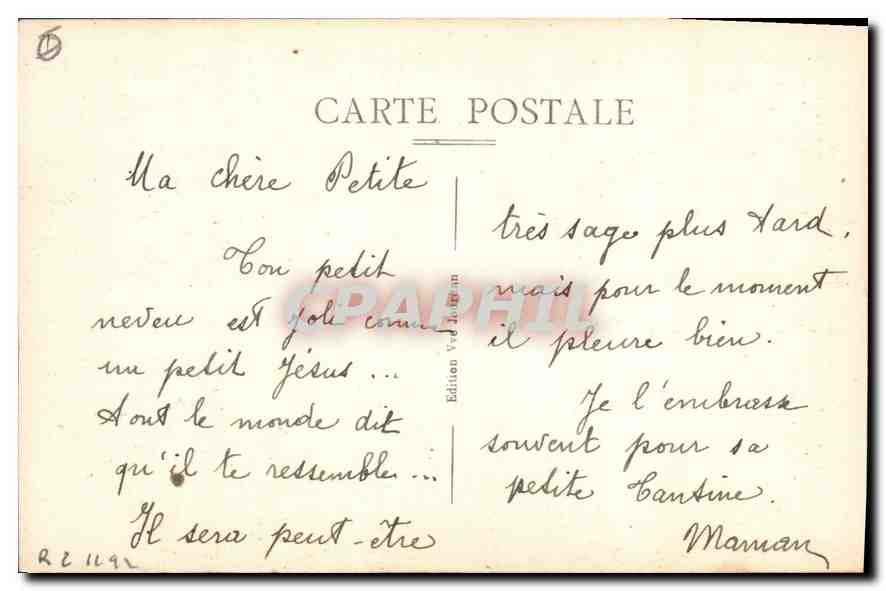 CARTE POSTALE
Ma chère Petite
Ton petit
neveu est joli comme
un petit Jésus...
tout le monde dit
qu'il te ressemble...
Il sera peut-être
Edition Vve
très sage plus tard,
mais pour le moment
il pleure bien.
Je l'embrasse
souvent pour sa
petite Tantine.
Maman
CPAPHIL
R 2 1192